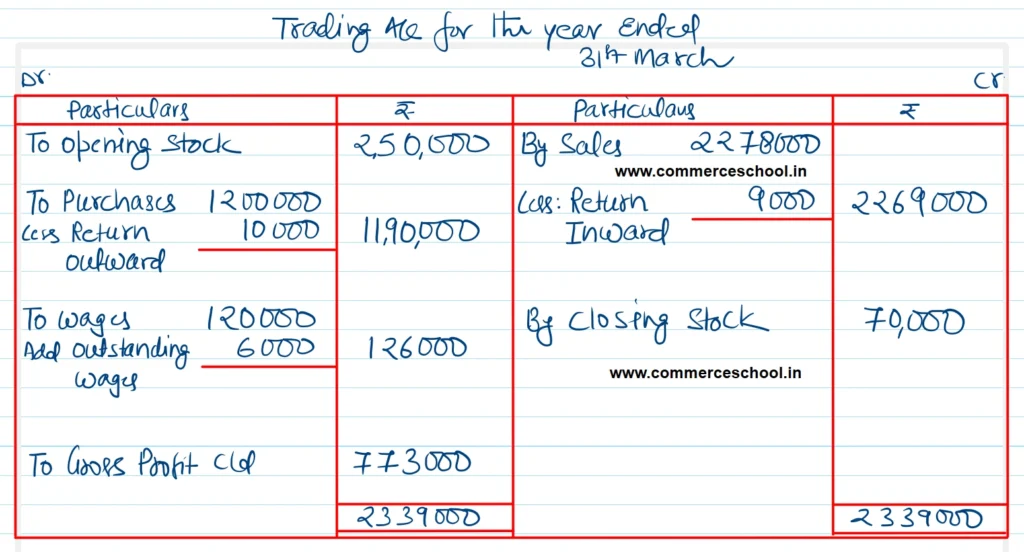 Trading A/c for the year Ended
31st March
Dr. Cr
Particulars ₹ Particulars ₹
To opening Stock 2,50,000 By Sales 2278000
www.commerceschool.in
To Purchases 1200000 Less: Return 9000 2269000
Less Return 10000 11,90,000 Inward
outward
To wages 120000 By Closing Stock 70,000
Add outstanding 6000 126000
wages www.commerceschool.in
To Gross Profit c/d 773000
2339000 2339000